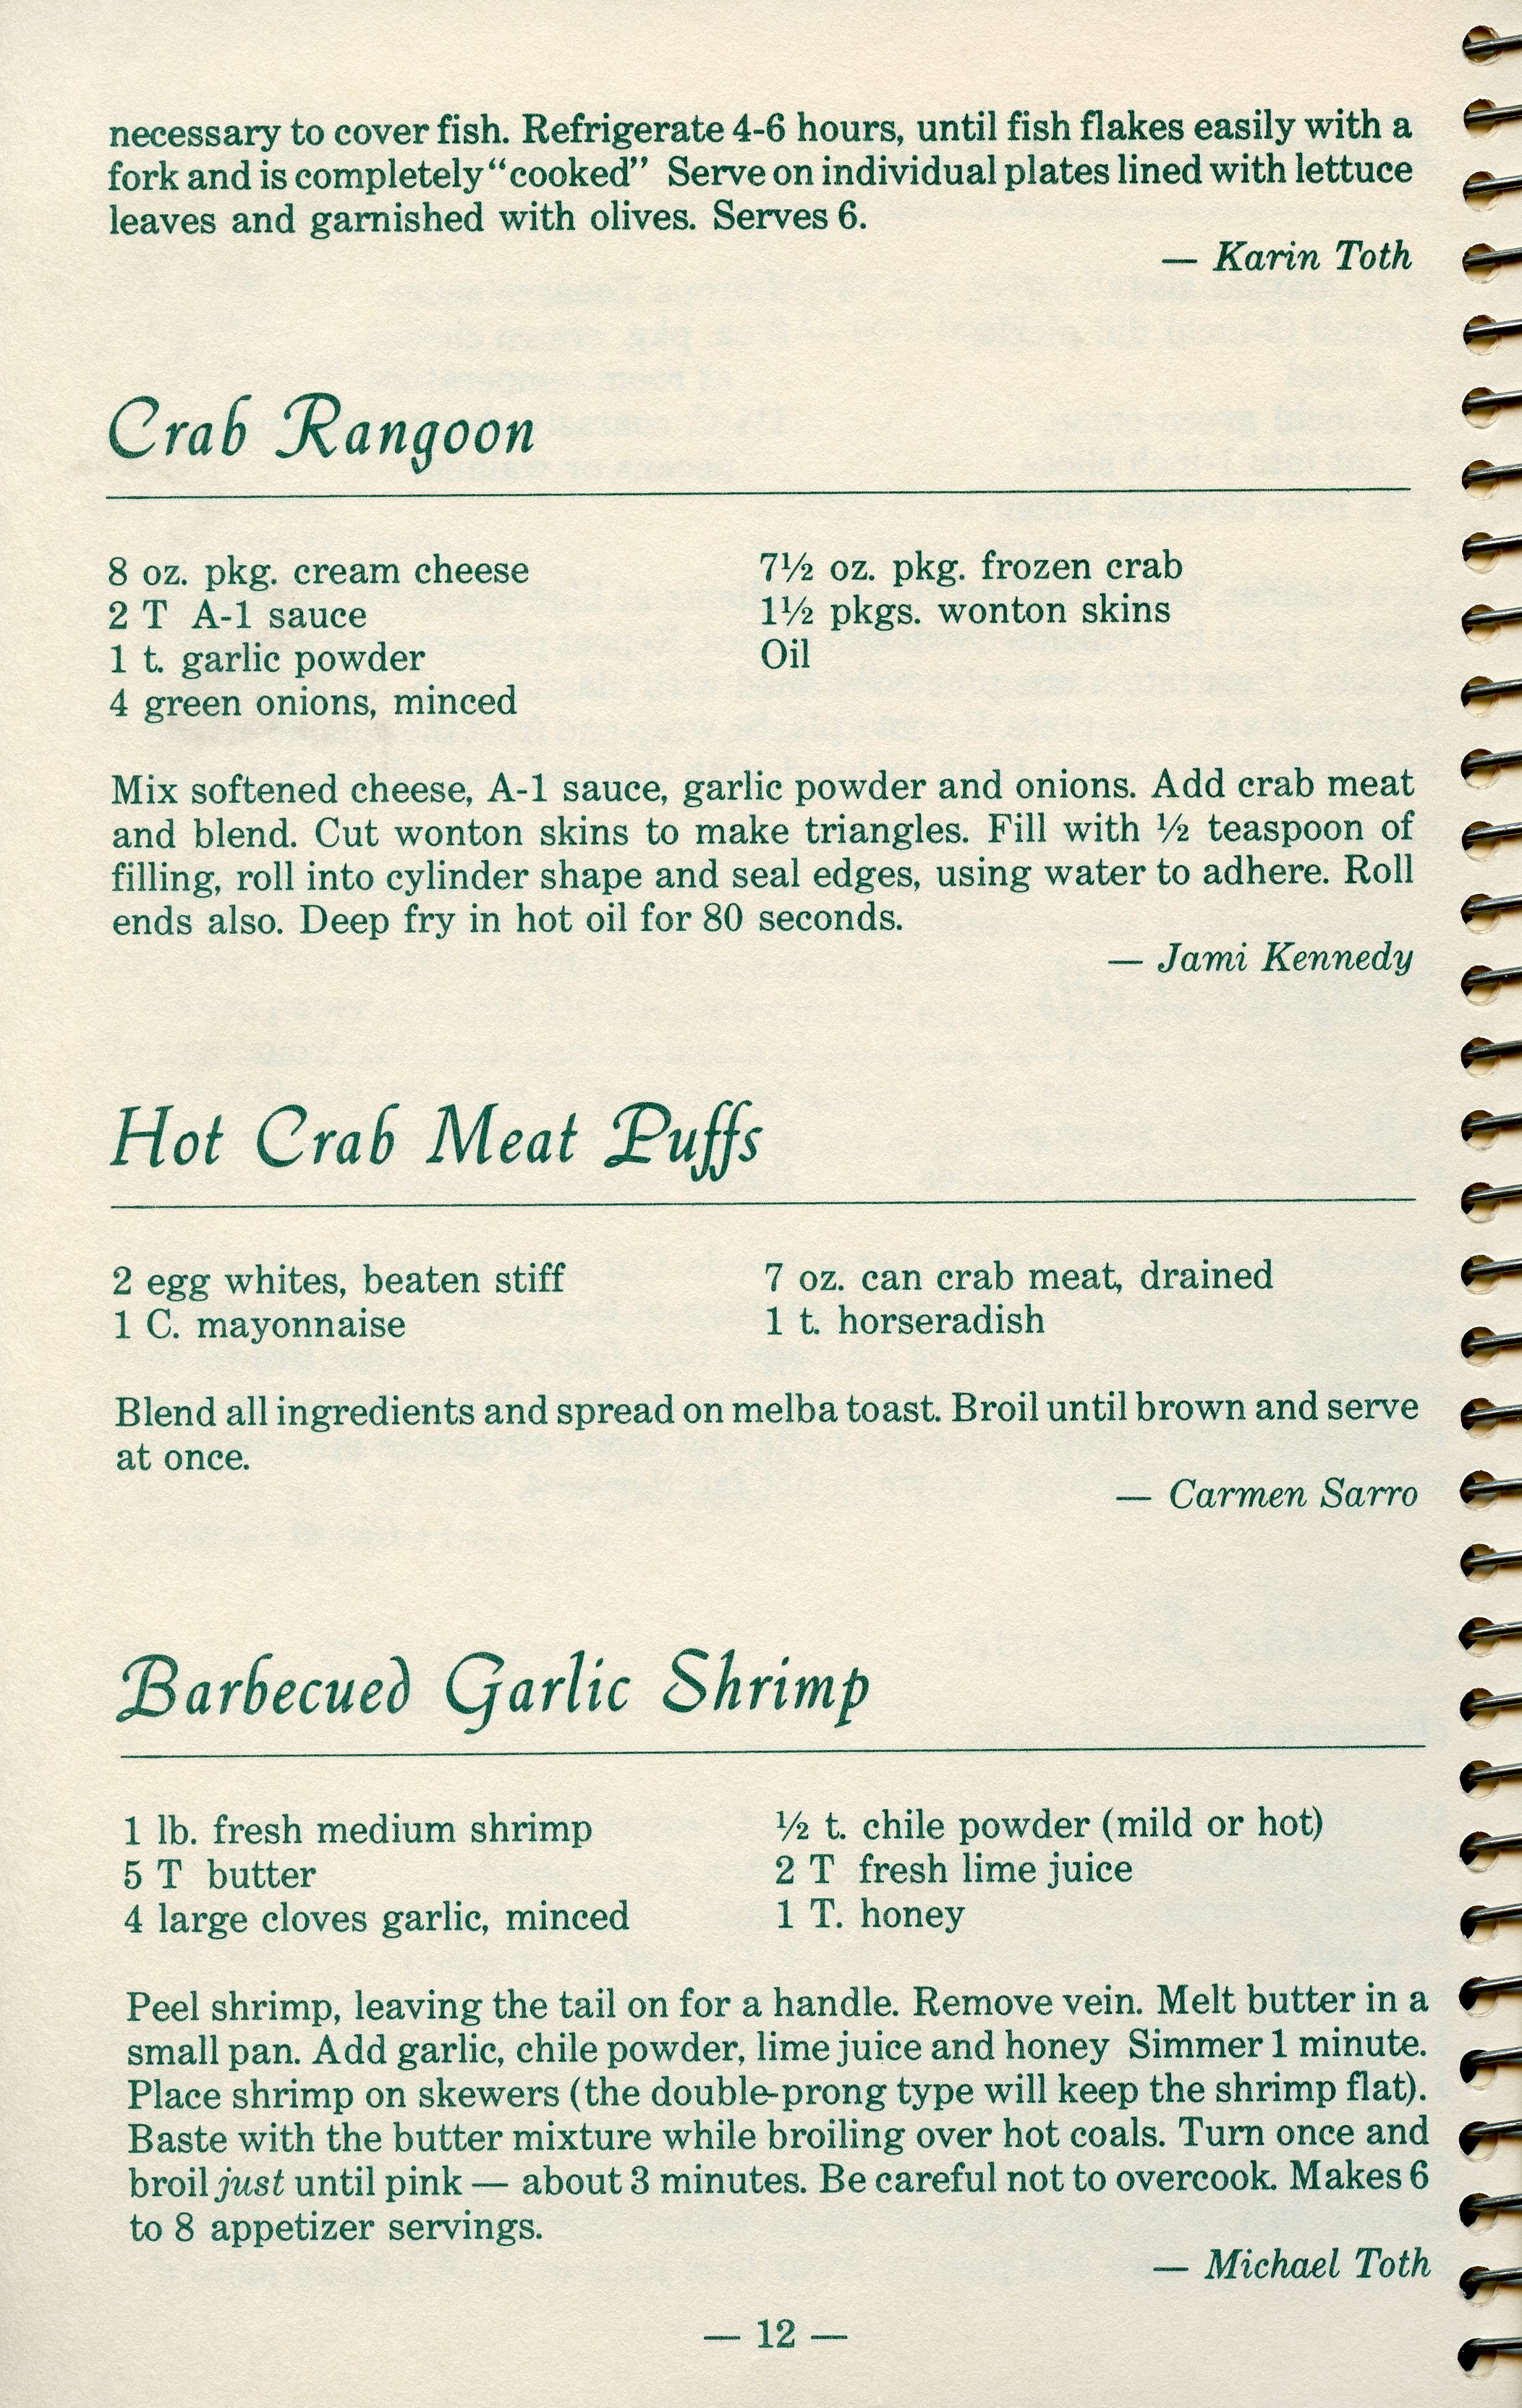 necessary to cover fish. Refrigerate 4-6 hours, until fish flakes easily with a
fork and is completely “cooked” Serve on individual plates lined with lettuce
leaves and garnished with olives. Serves 6.
— Karin Toth
Crab Rangoon
8 oz. pkg. cream cheese
2 T A-1 sauce
1 t. garlic powder
4 green onions, minced
7½ oz. pkg. frozen crab
1½ pkgs. wonton skins
Oil
Mix softened cheese, A-1 sauce, garlic powder and onions. Add crab meat
and blend. Cut wonton skins to make triangles. Fill with ½ teaspoon of
filling, roll into cylinder shape and seal edges, using water to adhere. Roll
ends also. Deep fry in hot oil for 80 seconds.
— Jami Kennedy
Hot Crab Meat Puffs
2 egg whites, beaten stiff
1 C. mayonnaise
7 oz. can crab meat, drained
1 t. horseradish
Blend all ingredients and spread on melba toast. Broil until brown and serve
at once.
— Carmen Sarro
Barbecued Garlic Shrimp
1 lb. fresh medium shrimp
5 T butter
4 large cloves garlic, minced
½ t. chile powder (mild or hot)
2 T fresh lime juice
1 T. honey
Peel shrimp, leaving the tail on for a handle. Remove vein. Melt butter in a
small pan. Add garlic, chile powder, lime juice and honey Simmer 1 minute.
Place shrimp on skewers (the double-prong type will keep the shrimp flat).
Baste with the butter mixture while broiling over hot coals. Turn once and
broil just until pink — about 3 minutes. Be careful not to overcook. Makes 6
to 8 appetizer servings.
— Michael Toth
— 12 —